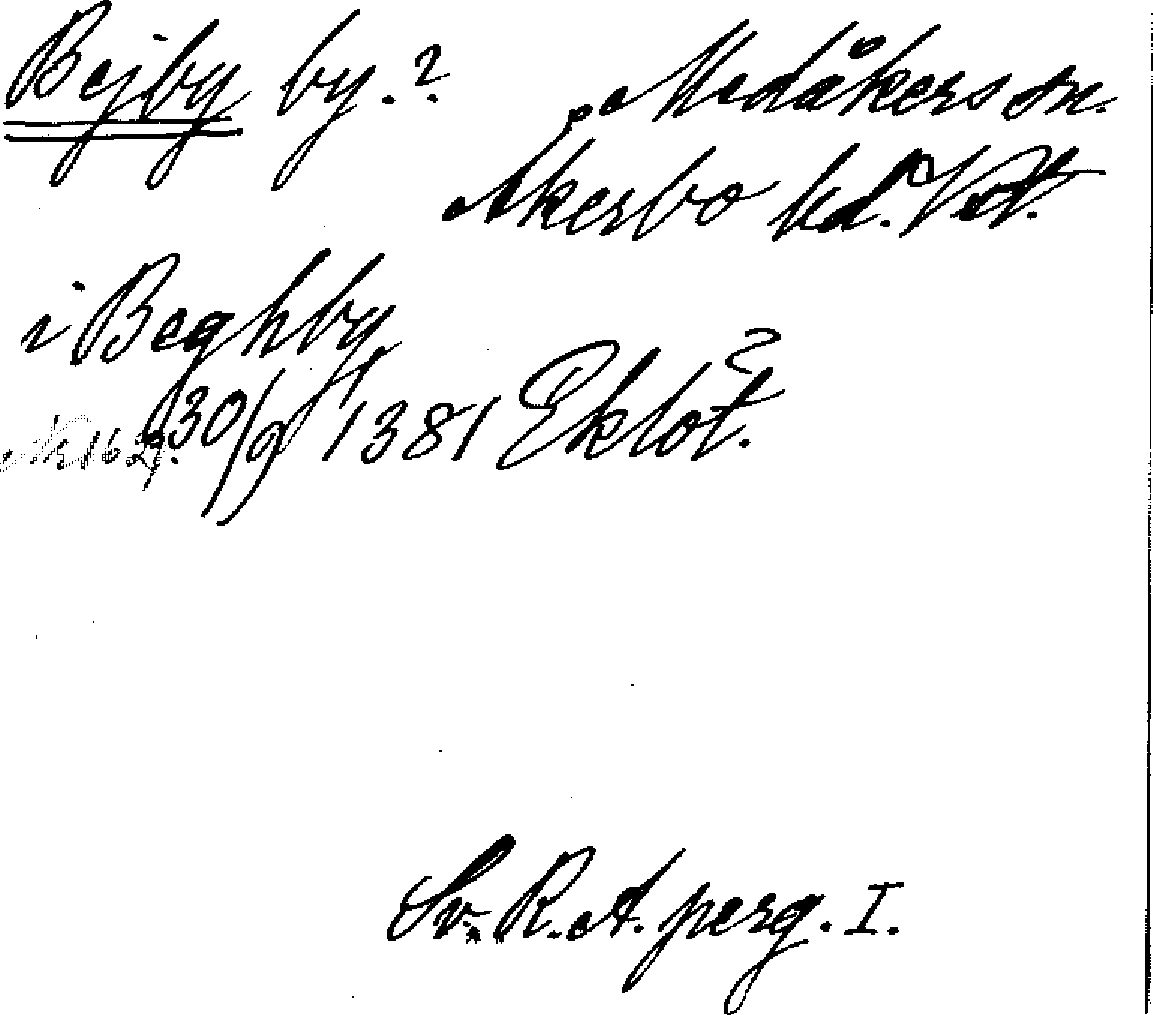 Bejby by.? Medåkers sn.
Åkerbo hd. Vstm.
i Beghby
Nr 1627. 30/9 1381 Eklöt.
Sv. R.A. perg. I.